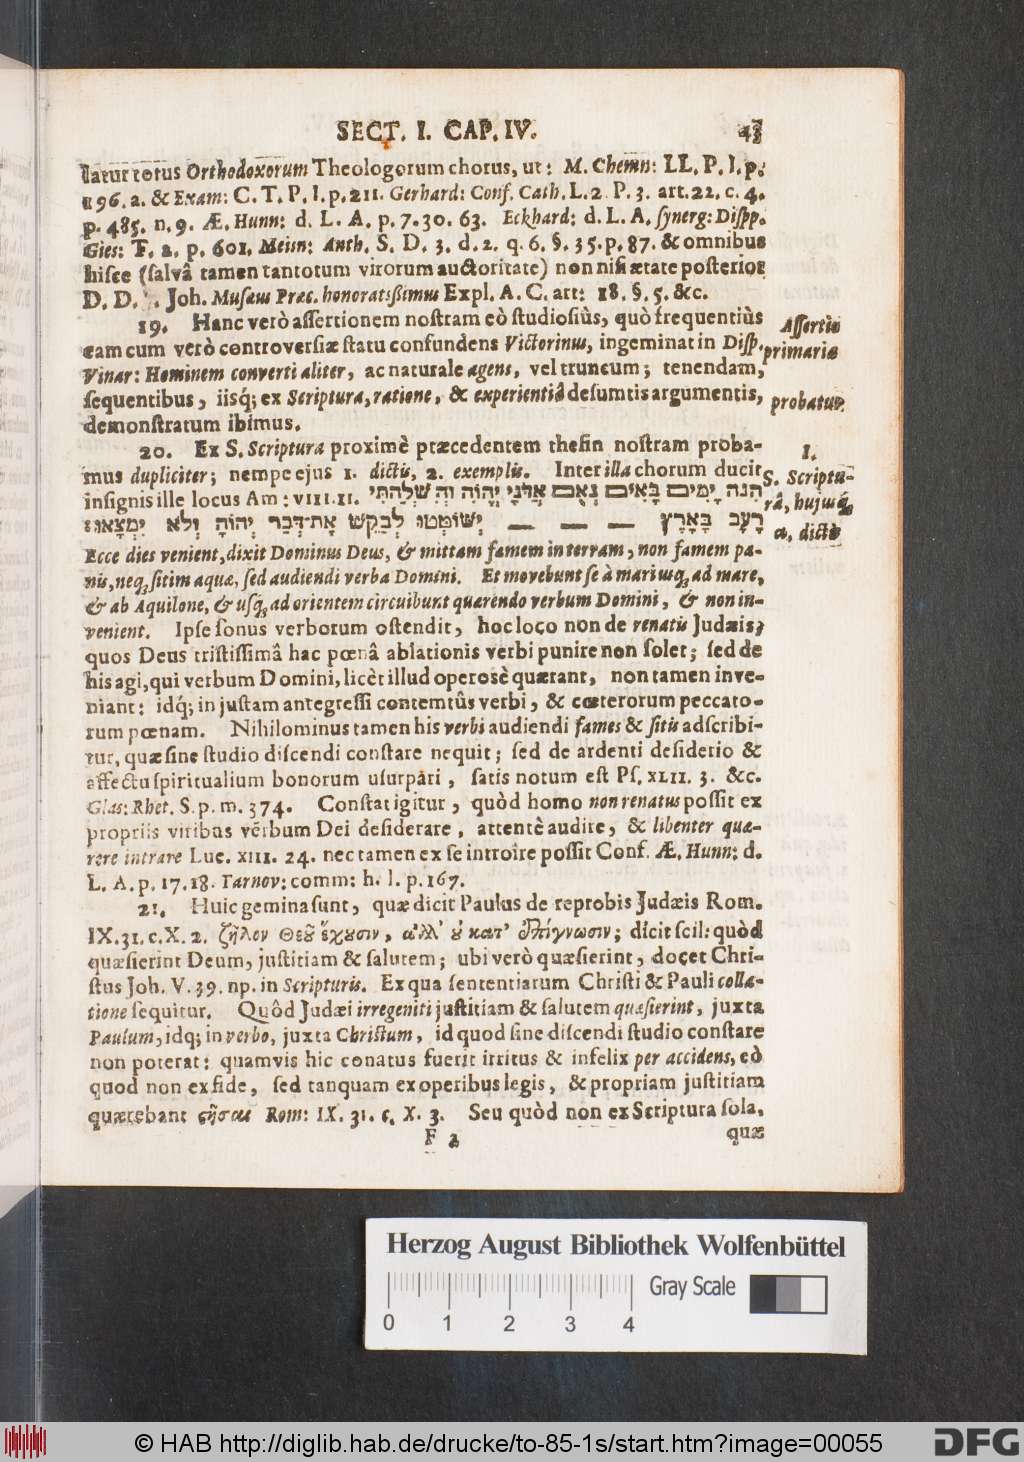 SECT. I. CAP. IV. 43
latur totus Orthodoxorum Theologorum chorus, ut: M. Chemn: LL. P. I. p.
196. a. & Exam: C. T. P. I. p. 211. Gerhard: Conf. Cath. L. 2 P. 3. art. 22. c. 4.
p. 485. n. 9. Æ. Hunn: d. L. A. p. 7. 30. 63. Eckhard: d. L. A. synerg: Dispp.
Gies: T. 2. p. 601. Meisn: Anth. S. D. 3. d. 2. q. 6. §. 35. p. 87. & omnibus
hisce (salvâ tamen tantorum virorum auctoritate) non nisi ætate posterior
D. D. Joh. Musæus Præc. honoratißimus Expl. A. C. art: 18. §. 5. &c.
19. Hanc verò assertionem nostram eò studiosiùs, quò frequentiùs
eam cum verò controversiæ statu confundens Victorinus, ingeminat in Disp.
Vinar: Hominem converti aliter, ac naturale agens, vel truncum; tenendam,
sequentibus, iisq; ex Scriptura, ratione, & experientiâ desumtis argumentis,
demonstratum ibimus.
Assertio
primaria
probatur.
20. Ex S. Scriptura proximè præcedentem thesin nostram proba-
mus dupliciter; nempe ejus 1. dictis, 2. exemplis. Inter illa chorum ducit
insignis ille locus Am: VIII. 11. הִנֵּה יָמִים בָּאִים נְאֻם אֲדֹנָי יֱהוִֹה וְהִשְׁלַחְתִּי
רָעָב בָּאָרֶץ — — — יְשׁוֹטְטוּ לְבַקֵּשׁ אֶת־דְּבַר יְהוָֹה וְלֹא יִמְצָאוּ׃
1.
S. Scriptu-
râ, hujusq́;
a. dictis
Ecce dies venient, dixit Dominus Deus, & mittam famem in terram, non famem pa-
nis, neq; sitim aquæ, sed audiendi verba Domini. Et movebunt se à mari usq; ad mare,
& ab Aquilone, & usq; ad orientem circuibunt quærendo verbum Domini, & non in-
venient. Ipse sonus verborum ostendit, hoc loco non de renatis Judæis,
quos Deus tristissimâ hac pœnâ ablationis verbi punire non solet; sed de
his agi, qui verbum Domini, licèt illud operosè quærant, non tamen inve-
niant: idq́; in justam antegressi contemtûs verbi, & cœterorum peccato-
rum pœnam. Nihilominus tamen his verbi audiendi fames & sitis adscribi-
tur, quæ sine studio discendi constare nequit; sed de ardenti desiderio &
affectu spiritualium bonorum usurpari, satis notum est Ps. XLII. 3. &c.
Glas: Rhet. S. p. m. 374. Constat igitur, quòd homo non renatus possit ex
propriis viribus verbum Dei desiderare, attentè audire, & libenter quæ-
rere intrare Luc. XIII. 24. nec tamen ex se introire possit Conf. Æ. Hunn: d.
L. A. p. 17. 18. Tarnov: comm: h. l. p. 167.
21. Huic gemina sunt, quæ dicit Paulus de reprobis Judæis Rom.
IX. 31. c. X. 2. ζῆλον Θεοῦ ἔχουσιν, ἀλλ' οὐ κατ' ἐπίγνωσιν; dicit scil: quòd
quæsierint Deum, justitiam & salutem; ubi verò quæsierint, docet Chri-
stus Joh. V. 39. np. in Scripturis. Ex qua sententiarum Christi & Pauli colla-
tione sequitur. Quôd Judæi irregeniti justitiam & salutem quæsierint, juxta
Paulum, idq; in verbo, juxta Christum, id quod sine discendi studio constare
non poterat: quamvis hic conatus fuerit irritus & infelix per accidens, eò
quod non ex fide, sed tanquam ex operibus legis, & propriam justitiam
quærebant ςῆσαι Rom: IX. 31. c. X. 3. Seu quòd non ex Scriptura sola,
F 2 quæ
Herzog August Bibliothek Wolfenbüttel
Gray Scale
0 1 2 3 4
© HAB http://diglib.hab.de/drucke/to-85-1s/start.htm?image=00055
DFG